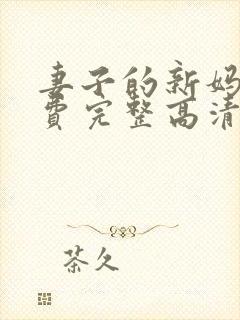 妻子的新妈
费完整高清
茶久